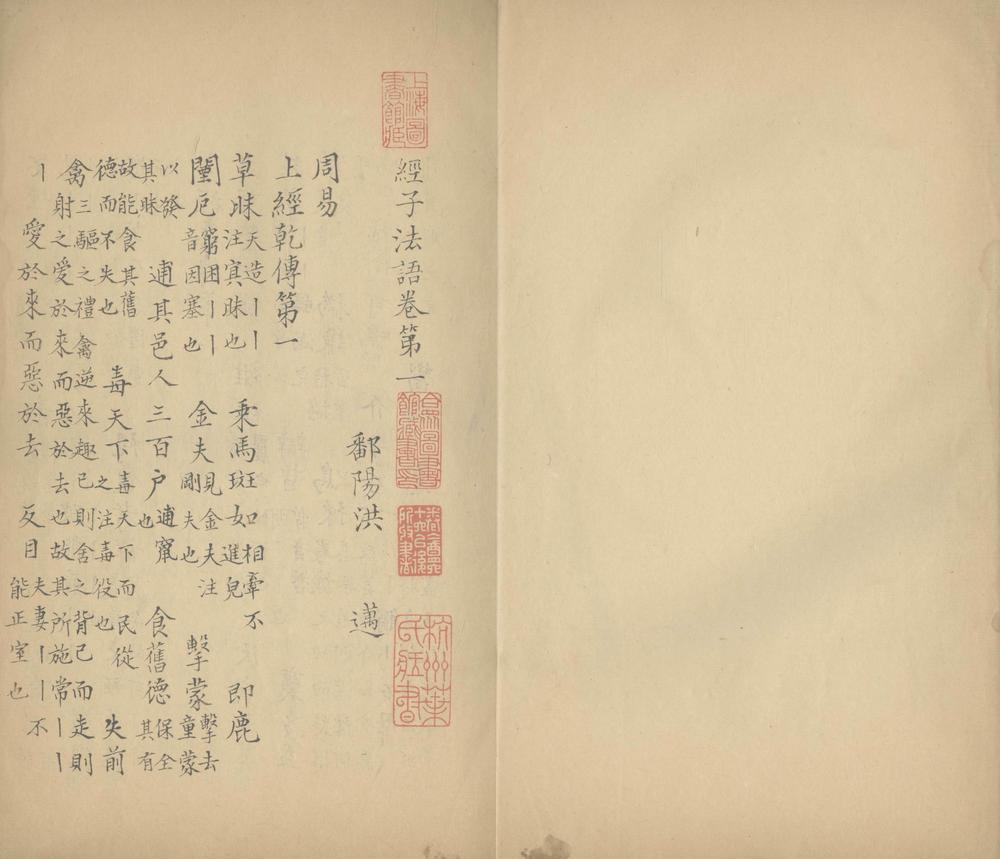 經子法語卷第一
鄱陽洪 邁
周易
上經乾傳第一
草昧 天造丨丨注㝠昧也 乘馬班如 相牽不進皃 即鹿
闉厄 窮困丨丨音因塞也 金夫 見金夫注剛夫也 擊蒙 擊去童蒙
以發其昧 逋其邑人三百户 逋竄也 食舊德 保全其有
故能食其舊德而不失也 毒天下 毒天下而民從之注毒役也 失前
禽 三驅之禮禽逆來趣己則舍之背己而走則射之愛於來而惡於去也故其所施常丨丨
丨 愛於來而惡於去 反目 夫妻丨丨不能正室也
上海圖書館藏
合眾圖書館藏書印
杭州葉氏藏書